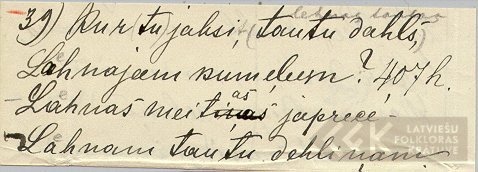 39) Kur (tu) jahsi, tautu dehls,
Lehnajam kumeļam? 407 h.
Lehnas meitas japrecē
Lehnam tautu dehliņam
LATVIEŠU
FOLKLORAS
KRĀTUVE